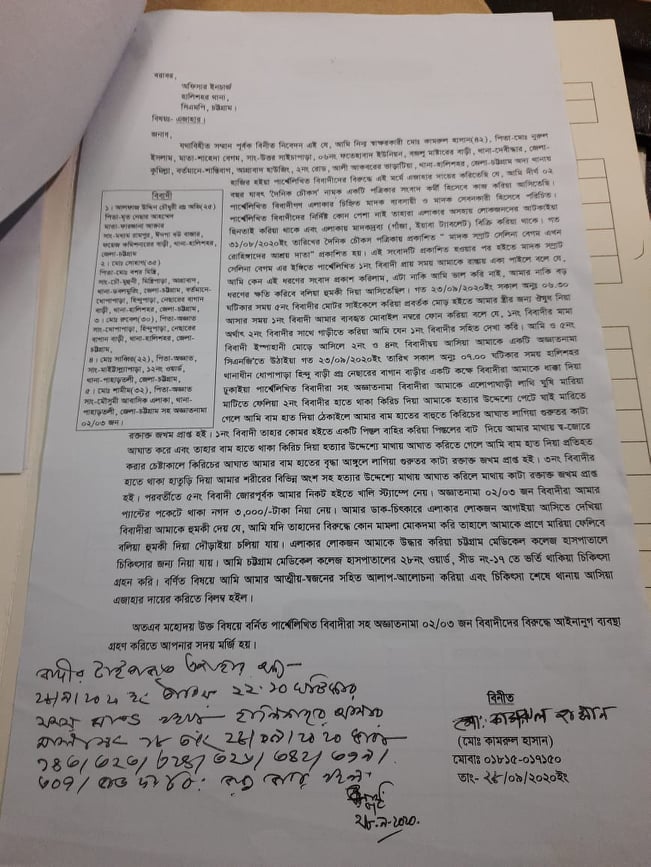 বরাবর,
অফিসার ইনচার্জ
হালিশহর থানা,
সিএমপি, চট্টগ্রাম।
বিষয়:- এজাহার।
জনাব,
যথাবিহীত সম্মান পূর্বক বিনীত নিবেদন এই যে, আমি নিম্ন স্বাক্ষরকারী মোঃ কামরুল হাসান(৪২), পিতা-মোঃ নুরুল
ইসলাম, মাতা-শাহেদা বেগম, সাং-উত্তর সাইচাপাড়া, ০৬নং ফতেহাবাদ ইউনিয়ন, বজলু মাষ্টারের বাড়ী, থানা-দেবীদ্বার, জেলা-
কুমিল্লা, বর্তমানে-শান্তিবাগ, আগ্রাবাদ হাউজিং, ২নং রোড, আলী আকবরের ভাড়াটিয়া, থানা-হালিশহর, জেলা-চট্টগ্রাম অদ্য থানায়
হাজির হইয়া পার্শ্বেলিখিত বিবাদীদের বিরুদ্ধে এই মর্মে এজাহার দায়ের করিতেছি যে, আমি দীর্ঘ ০২
বছর যাবৎ 'দৈনিক চৌকস' নামক একটি পত্রিকার সংবাদ কর্মী হিসেবে কাজ করিয়া আসিতেছি।
পার্শ্বেলিখিত বিবাদীগণ এলাকার চিহ্নিত মাদক ব্যবসায়ী ও মাদক সেবনকারী হিসেবে পরিচিত।
পার্শ্বেলিখিত বিবাদীদের নির্দিষ্ট কোন পেশা নাই তাহারা এলাকার অসহায় লোকজনদের আটকাইয়া
ছিনতাই করিয়া থাকে এবং এলাকায় মাদকদ্রব্য (গাঁজা, ইয়াবা ট্যাবলেট) বিক্রি করিয়া থাকে। গত
৩১/০৮/২০২০ইং তারিখের দৈনিক চৌকস পত্রিকায় প্রকাশিত " মাদক সম্রাট সেলিনা বেগম এখন
রোহিঙ্গাদের আশ্রয় দাতা" প্রকাশিত হয়। এই সংবাদটি প্রকাশিত হওয়ার পর হইতে মাদক সম্রাট
সেলিনা বেগম এর ইঙ্গিতে পার্শ্বেলিখিত ১নং বিবাদী প্রায় সময় আমাকে রাস্তায় একা পাইলে বলে যে,
আমি কেন এই ধরণের সংবাদ প্রকাশ করিলাম, এটা নাকি আমি ভাল করি নাই, আমার নাকি বড়
ধরণের ক্ষতি করিবে বলিয়া হুমকী দিয়া আসিতেছিল। গত ২৩/০৯/২০২০ইং সকাল অনুঃ ০৬.৩০
ঘটিকার সময় ৫নং বিবাদীর মোটর সাইকেলে করিয়া প্রবর্তক মোড় হইতে আমার স্ত্রীর জন্য ঔষুধ নিয়া
আসার সময় ১নং বিবাদী আমার ব্যবহৃত মোবাইল নম্বরে ফোন করিয়া বলে যে, ১নং বিবাদীর মামা
অর্থাৎ ২নং বিবাদীর সাথে গাড়ীতে করিয়া আমি যেন ১নং বিবাদীর সহিত দেখা করি। আমি ও ৫নং
বিবাদী ইস্পাহানী মোড়ে আসিলে ২নং ও ৪নং বিবাদীদ্বয় আসিয়া আমাকে একটি অজ্ঞাতনামা
সিএনজি'তে উঠাইয়া গত ২৩/০৯/২০২০ইং তারিখ সকাল অনুঃ ০৭.০০ ঘটিকার সময় হালিশহর
থানাধীন ধোপাপাড়া হিন্দু বাড়ী প্রঃ নেছারের বাগান বাড়ীর একটি কক্ষে বিবাদীরা আমাকে ধাক্কা দিয়া
ঢুকাইয়া পার্শ্বেলিখিত বিবাদীরা সহ অজ্ঞাতনামা বিবাদীরা আমাকে এলোপাথাড়ী লাথি ঘুষি মারিয়া
মাটিতে ফেলিয়া ২নং বিবাদীর হাতে থাকা কিরিচ দিয়া আমাকে হত্যার উদ্দেশ্যে পেটে ঘাই মারিতে
গেলে আমি বাম হাত দিয়া ঠেকাইলে আমার বাম হাতের বাহুতে কিরিচের আঘাত লাগিয়া গুরুতর কাটা
রক্তাক্ত জখম প্রাপ্ত হই। ১নং বিবাদী তাহার কোমর হইতে একটি পিস্তল বাহির করিয়া পিস্তলের বাট দিয়ে আমার মাথায় স্ব-জোরে
আঘাত করে এবং তাহার বাম হাতে থাকা কিরিচ দিয়া হত্যার উদ্দেশ্যে মাথায় আঘাত করিতে গেলে আমি বাম হাত দিয়া প্রতিহত
করার চেষ্টাকালে কিরিচের আঘাত আমার বাম হাতের বৃদ্ধা আঙ্গুলে লাগিয়া গুরুতর কাটা রক্তাক্ত জখম প্রাপ্ত হই। ৩নং বিবাদীর
হাতে থাকা হাতুড়ি দিয়া আমার শরীরের বিভিন্ন অংশ সহ হত্যার উদ্দেশ্যে মাথায় আঘাত করিলে মাথায় কাটা রক্তাক্ত জখম প্রাপ্ত
হই। পরবর্তীতে ৫নং বিবাদী জোরপূর্বক আমার নিকট হইতে খালি স্ট্যাম্পে নেয়। অজ্ঞাতনামা ০২/০৩ জন বিবাদীরা আমার
প্যান্টের পকেটে থাকা নগদ ৩,০০০/-টাকা নিয়া নেয়। আমার ডাক-চিৎকারে এলাকার লোকজন আগাইয়া আসিতে দেখিয়া
বিবাদীরা আমাকে হুমকী দেয় যে, আমি যদি তাহাদের বিরুদ্ধে কোন মামলা মোকদমা করি তাহালে আমাকে প্রাণে মারিয়া ফেলিবে
বলিয়া হুমকী দিয়া দৌড়াইয়া চলিয়া যায়। এলাকার লোকজন আমাকে উদ্ধার করিয়া চট্টগ্রাম মেডিকেল কলেজ হাসপাতালে
চিকিৎসার জন্য নিয়া যায়। আমি চট্টগ্রাম মেডিকেল কলেজ হাসপাতালের ২৮নং ওয়ার্ড, সীড নং-১৭ তে ভর্তি থাকিয়া চিকিৎসা
গ্রহন করি। বর্ণিত বিষয়ে আমি আমার আত্মীয়-স্বজনের সহিত আলাপ-আলোচনা করিয়া এবং চিকিৎসা শেষে থানায় আসিয়া
এজাহার দায়ের করিতে বিলম্ব হইল।
অতএব মহোদয় উক্ত বিষয়ে বর্নিত পার্শ্বেলিখিত বিবাদীরা সহ অজ্ঞাতনামা ০২/০৩ জন বিবাদীদের বিরুদ্ধে আইনানুগ ব্যবস্থা
গ্রহণ করিতে আপনার সদয় মর্জি হয়।
বিবাদী
১। আলফাজ উদ্দিন চৌধুরী প্রঃ অভি(২৫)
পিতা-মৃত নেছার আহম্মেদ
মাতা-ফারজানা আক্তার
সাং-মধ্যম রামপুর, ঈদগা বউ বাজার,
ফয়েজ কমিশনারের বাড়ী, থানা-হালিশহর,
জেলা-চট্টগ্রাম
২। মোঃ সোহাগ(৩৫)
পিতা-মোঃ বশর মিস্ত্রি,
সাং-চৌ-মুহুনী, মিস্ত্রিপাড়া, আগ্রাবাদ,
থানা-ডবলমুরিং, জেলা-চট্টগ্রাম, বর্তমানে-
ধোপাপাড়া, হিন্দুপাড়া, নেছারের বাগান
বাড়ী, থানা-হালিশহর, জেলা-চট্টগ্রাম।
৩। মোঃ রুবেল(৩০), পিতা-অজ্ঞাত
সাং-ধোপাপাড়া, হিন্দুপাড়া, নেছারের
বাগান বাড়ী, থানা-হালিশহর, জেলা-
চট্টগ্রাম,
৪। মোঃ সাব্বির(২২), পিতা-অজ্ঞাত,
সাং-মাইট্টাল্লাপাড়া, ১২নং ওয়ার্ড,
থানা-পাহাড়তলী, জেলা-চট্টগ্রাম।
৫। মোঃ শামীম(৩২), পিতা-অজ্ঞাত
সাং-মৌসুমী আবাসিক এলাকা, থানা-
পাহাড়তলী, জেলা-চট্টগ্রাম সহ অজ্ঞাতনামা
০২/০৩ জন।
২২:১০
১৪৩/
বিনীত
মোঃ কামরুল হাসান
(মোঃ কামরুল হাসান)
মোবাঃ ০১৮১৫-০১৭১৫০
তাং- ২৮/০৯/২০২০ইং